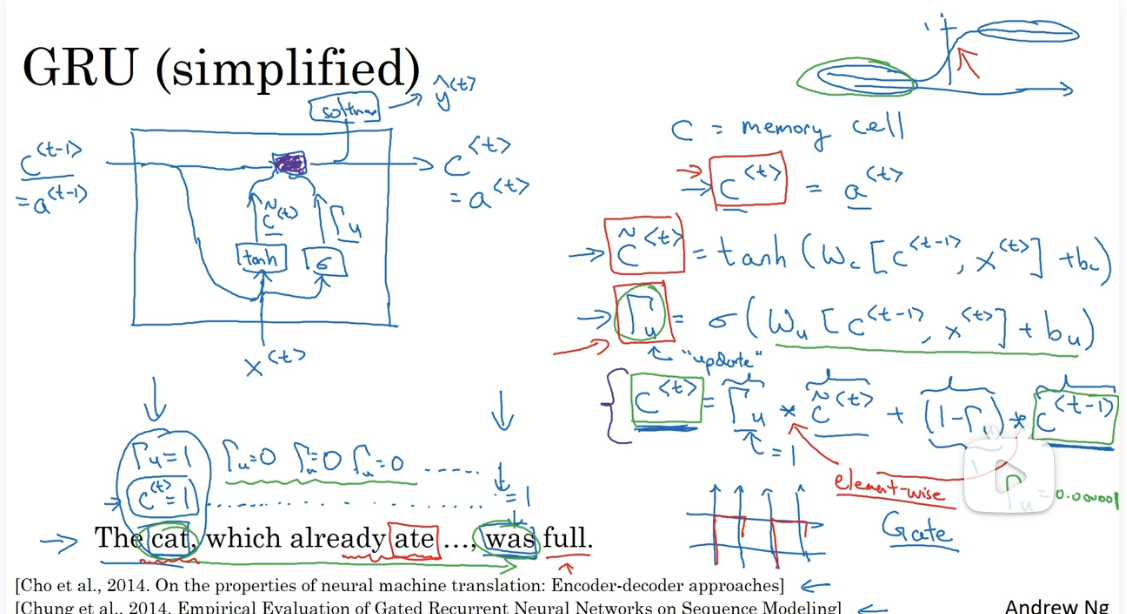 GRU (simplified)
softmax → ŷ<t>
c<t-1>
= a<t-1>
c̃<t>
Γu
tanh
σ
c<t>
= a<t>
x<t>
1
C = memory cell
→ c<t> = a<t>
→ c̃<t> = tanh (Wc [c<t-1>, x<t>] + bc)
→ Γu = σ (Wu [c<t-1>, x<t>] + bu)
"update"
c<t> = Γu * c̃<t> + (1-Γu) * c<t-1>
= 1
element-wise
Γu = 0.000001
Gate
Γu=1 Γu=0 Γu=0 Γu=0 .....
c<t>=1 ..........
= 1
→ The cat, which already ate …, was full.
[Cho et al., 2014. On the properties of neural machine translation: Encoder-decoder approaches] ←
[Chung et al., 2014. Empirical Evaluation of Gated Recurrent Neural Networks on Sequence Modeling] ←
Andrew Ng